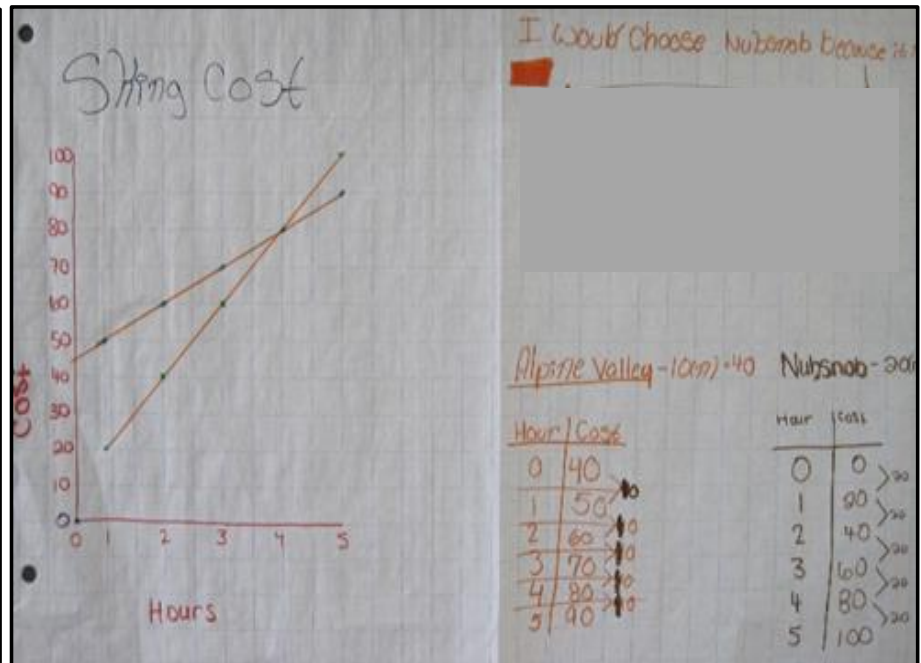 Sking Cost
100
90
80
70
60
50
40
30
20
10
0
Cost
0 1 2 3 4 5
Hours
I would Choose Nubsnob because it
Alpine Valley - 10(n) + 40
Hour | Cost
0 40
1 50
2 60
3 70
4 80
5 90
Nubsnob - 20
Hour | Cost
0 0 20
1 20 20
2 40 20
3 60 20
4 80 20
5 100